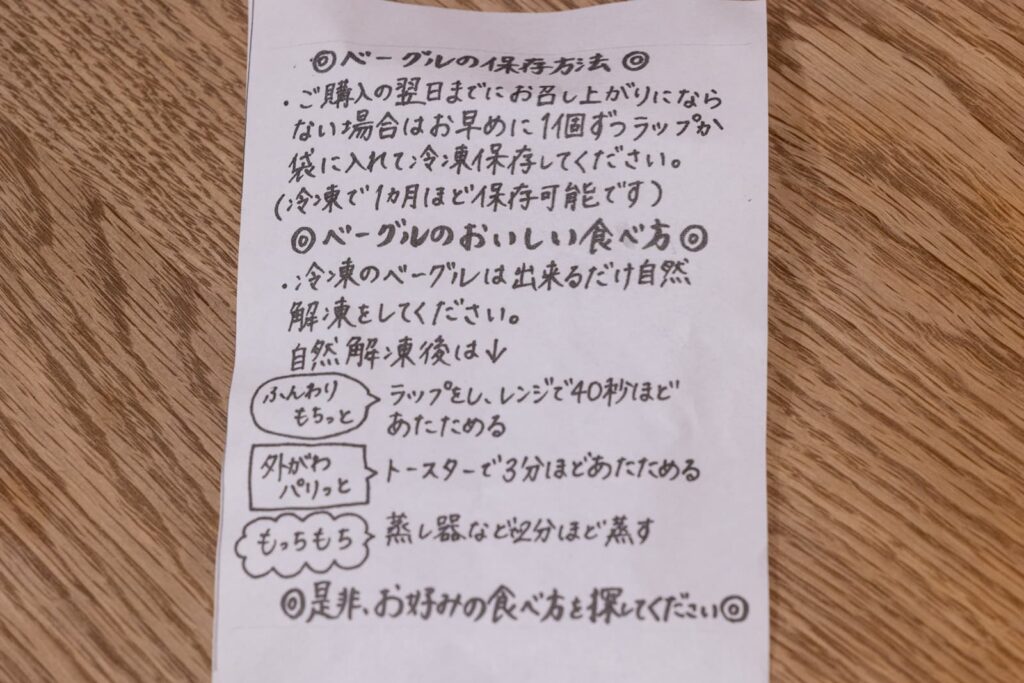 ◎ベーグルの保存方法◎
・ご購入の翌日までにお召し上がりになら
ない場合はお早めに1個ずつラップか
袋に入れて冷凍保存してください。
(冷凍で1ヵ月ほど保存可能です)
◎ベーグルのおいしい食べ方◎
・冷凍のベーグルは出来るだけ自然
解凍をしてください。
自然解凍後は↓
ふんわり
もちっと
ラップをし、レンジで40秒ほど
あたためる
外がわ
パリっと
トースターで3分ほどあたためる
もっちもち
蒸し器などで2分ほど蒸す
◎是非、お好みの食べ方を探してください◎